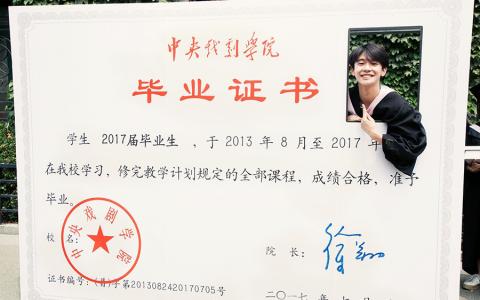 中央戏剧学院
毕业证书
学生 2017届毕业生 ，于 2013 年 8 月至 2017 年
在我校学习，修完教学计划规定的全部课程，成绩合格，准予
毕业。
中央戏剧学院
校 名：
院 长：
证书编号：(普)字第2013082420170705号
二〇一七 年 七 月